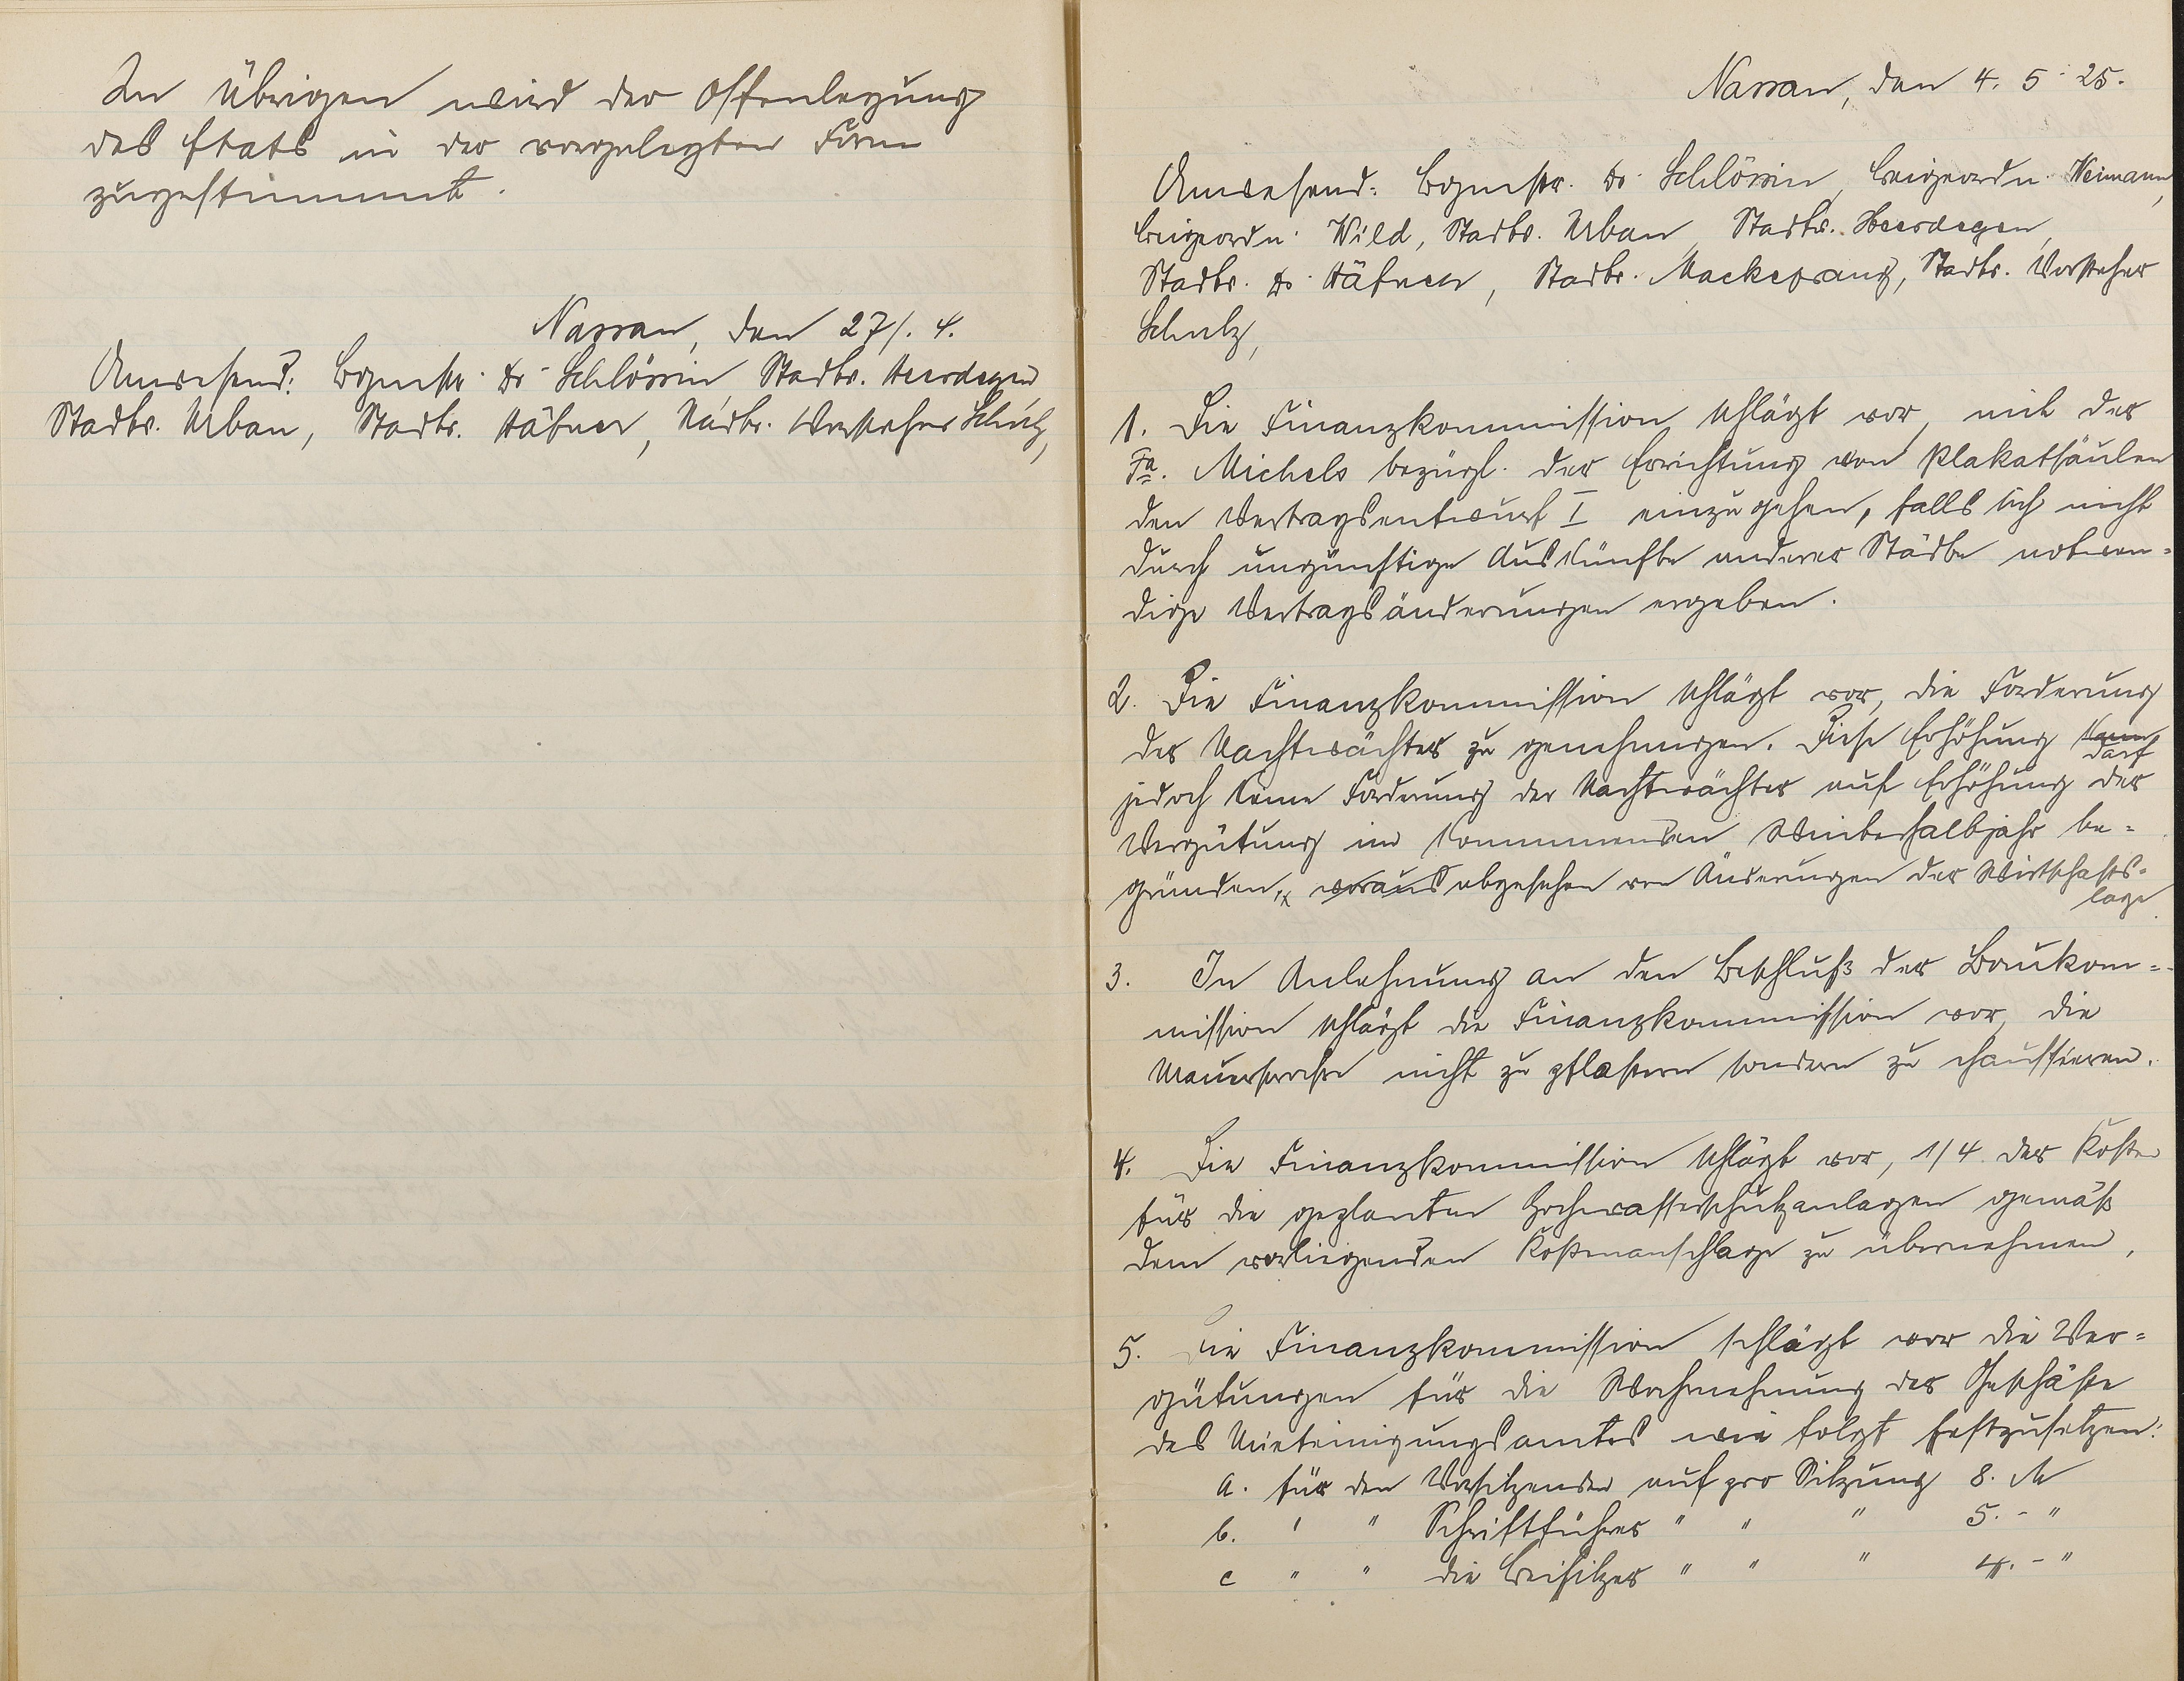 Im Übrigen wird der Offenlegung
des Etats in der vorgelegten Form
zugestimmt.
Nassau, den 27/. 4.
Anwesend: Bgmstr. Dr. Schlössin Stadtv. Heerdegen
Stadtv. Urban, Stadtv. Häfner, Stadtv. Vorsteher Schulz,
Nassau, den 4. 5. 25.
Anwesend: Bgmstr. Dr. Schlössin, Beigeordn. Weimann,
Beigeordn. Wild, Stadtv. Urban, Stadtv. Heerdegen,
Stadtv. Dr. Häfner, Stadtv. Mackeprang, Stadtv. Vorsteher
Schulz,
1. Die Finanzkommission schlägt vor, mit der
Fa. Michels bezügl. der Errichtung von Plakatsäulen
den Vertragsentwurf I einzugehen, falls sich nicht
durch ungünstige Auskünfte anderer Städte notwen=
dige Vertragsänderungen ergeben.
2. Die Finanzkommission schlägt vor, die Forderung
der Nachtwächter zu genehmigen. Diese Erhöhung kann darf
jedoch keine Forderung der Nachtwächter auf Erhöhung der
Vergütung im kommenden Winterhalbjahr be=
gründen, voraus abgesehen von Änderungen der Wirtschafts=
lage
3. In Anlehnung an den Beschluß der Baukom=
mission schlägt die Finanzkommission vor, die
Mauerstraße nicht zu pflastern sondern zu chaussieren.
4. Die Finanzkommission schlägt vor, 1/4 der Kosten
für die geplanten Hochwasserschutzanlagen gemäß
dem vorliegenden Kostenanschlage zu übernehmen.
5. Die Finanzkommission schlägt vor die Ver=
gütungen für die Wahrnehmung der Geschäfte
des Mieteinigungsamtes wie folgt festzusetzen:
a. für den Vorsitzenden auf pro Sitzung 8. M
b. " " Schriftführer " " " 5. - "
c " " die Beisitzer " " " 4. - "